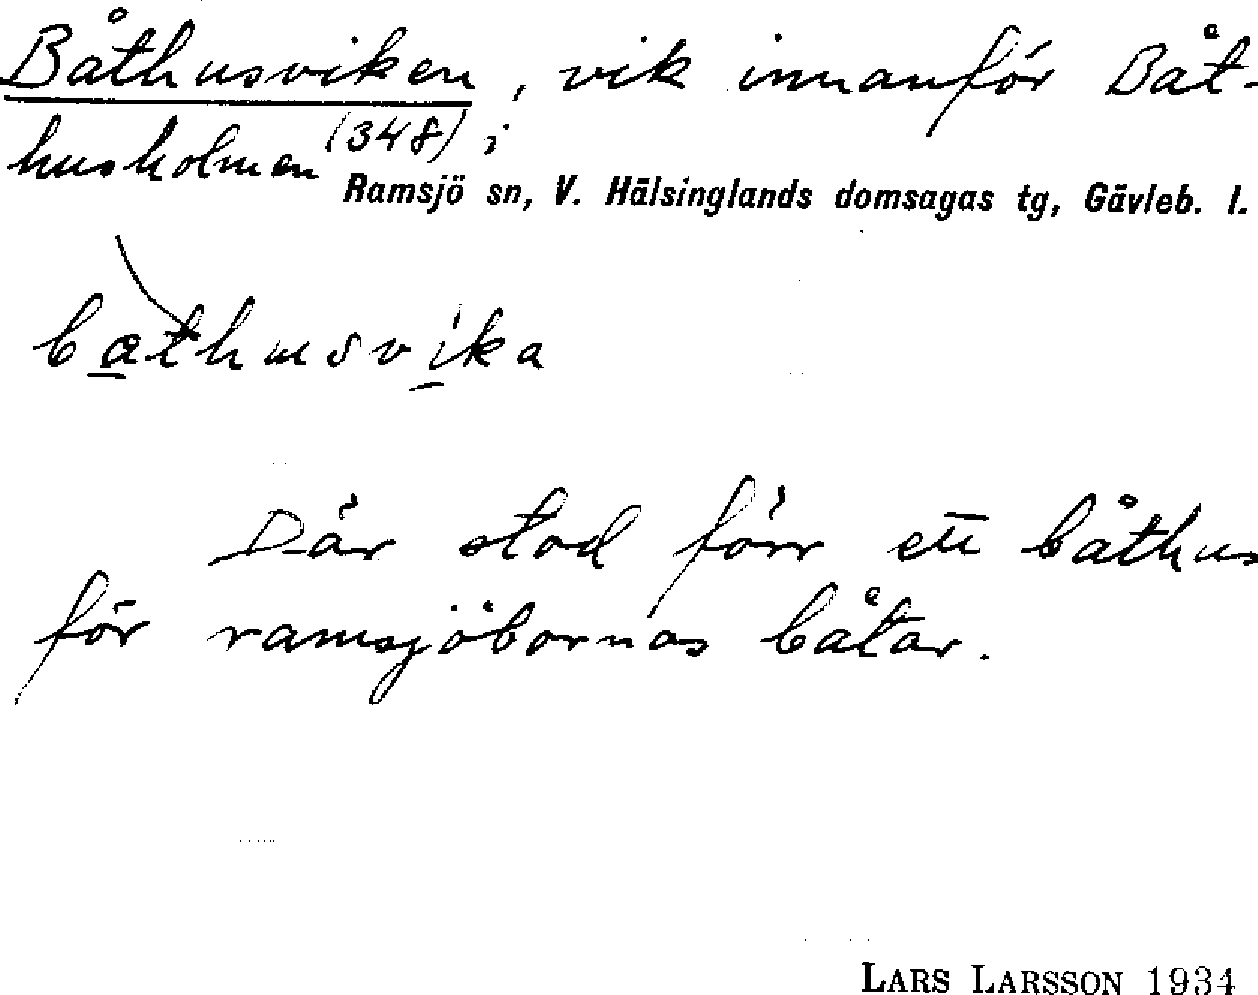 Båthusviken, vik innanför Båt-
husholmen (348) i
Ramsjö sn, V. Hälsinglands domsagas tg, Gävleb. l.
båthusvika
Där stod förr ett båthus
för ramsjöbornas båtar.
LARS LARSSON 1934